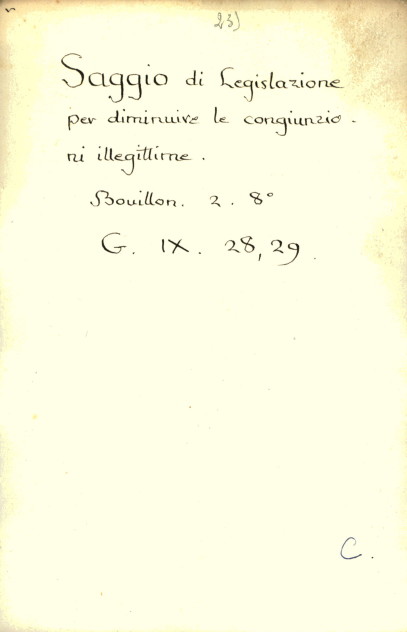 23)
Saggio di Legislazione
per diminuire le congiunzio-
ni illegittime.
Bouillon. 2. 8°
G. IX. 28,29.
C.